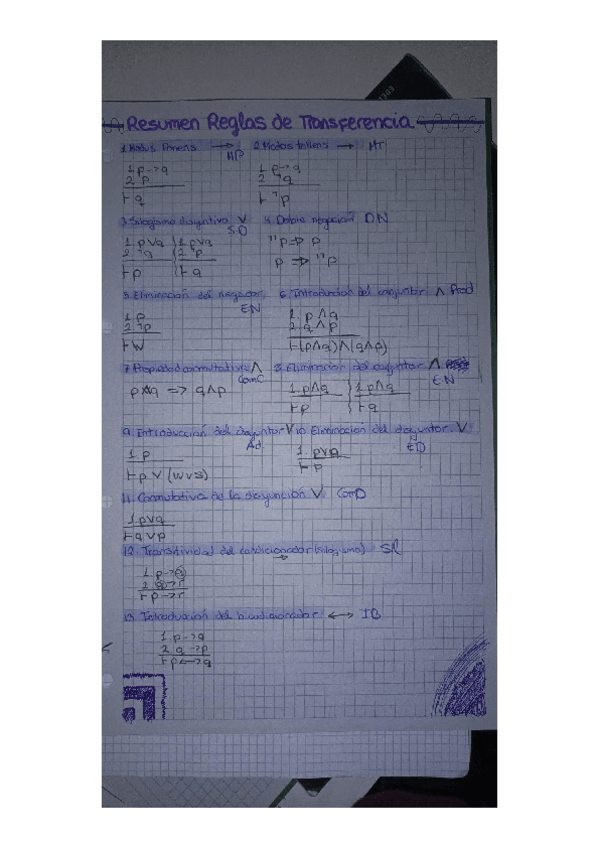 Resumen Reglas de Transferencia
1. Modus Ponens → MP 2. Modus tollens → MT
1. p→q 1. p→q
2. p 2. ¬q
⊢ q ⊢ ¬p
3. Silogismo disyuntivo V SD 4. Doble negación DN
1. p∨q 1. p∨q ¬¬p ⇒ p
2. ¬q 2. ¬p p ⇒ ¬¬p
⊢ p ⊢ q
5. Eliminación del negador EN 6. Introducción del conjuntor Λ Prod
1. p 1. p∧q
2. ¬p 2. q∧p
⊢ W ⊢(p∧q)∧(q∧p)
7. Propiedad conmutativa Λ ComC 8. Eliminación del conjuntor Λ EN
p∧q => q∧p 1. p∧q 1. p∧q
⊢ p ⊢ q
9. Introducción del disyuntor V Ad. 10 Eliminación del disyuntor V ED
1. p 1. p∨q
⊢ p ∨ (w∨s) ⊢ p
11. Conmutativa de la disyunción V ComD
1. p∨q
⊢ q∨p
12. Transitividad del condicionador (silogismo) → SL
1. p→q
2. q→r
⊢ p→r
13. Introducción del bicondicionador ↔ IB
1. p→q
2. q→p
⊢ p↔q